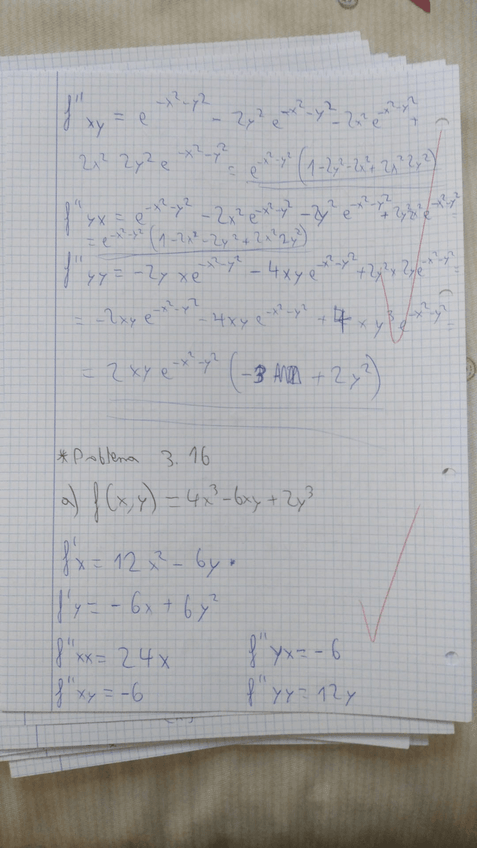 f''xy = e^{-x²-y²} - 2y² e^{-x²-y²} - 2x² e^{-x²-y²} +
2x² 2y² e^{-x²-y²} = e^{-x²-y²} (1-2y²-2x²+2x² 2y²)
f''yx = e^{-x²-y²} - 2x² e^{-x²-y²} - 2y² e^{-x²-y²} + 2y² 2x² e^{-x²-y²}
= e^{-x²-y²} (1-2x²-2y²+2x² 2y²)
f''yy = -2y x e^{-x²-y²} - 4xy e^{-x²-y²} + 2y² x 2y e^{-x²-y²} =
= -2xy e^{-x²-y²} - 4xy e^{-x²-y²} + 4 x y³ e^{-x²-y²} =
= 2xy e^{-x²-y²} (-3 + 2y²)
*Problema 3.16
a) f(x,y) = 4x³-6xy+2y³
f'x = 12x² - 6y
f'y = -6x + 6y²
f''xx = 24x f''yx = -6
f''xy = -6 f''yy = 12y